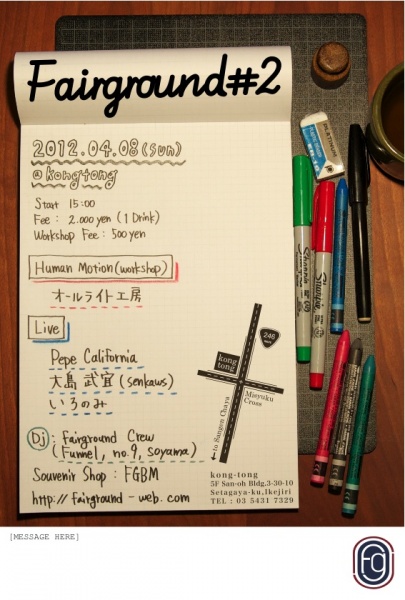 Fairground#2
2012.04.08 (sun)
@kongtong
Start 15:00
Fee : 2.000 yen ( 1 Drink )
Workshop Fee : 500 yen
Human Motion (workshop)
オールライト工房
Live
Pepe California
大島 武宜 (senkaws)
いろのみ
Dj : Fairground Crew
(Funnel, no.9, soyama)
Souvenir Shop : FGBM
http://fairground-web.com
246
kong
tong
Misyuku
Cross
to Sangen Chaya
kong-tong
5F San-oh Bldg.3-30-10
Setagaya-ku,Ikejiri
TEL : 03 5431 7329
Sharpie
[MESSAGE HERE]
Fg